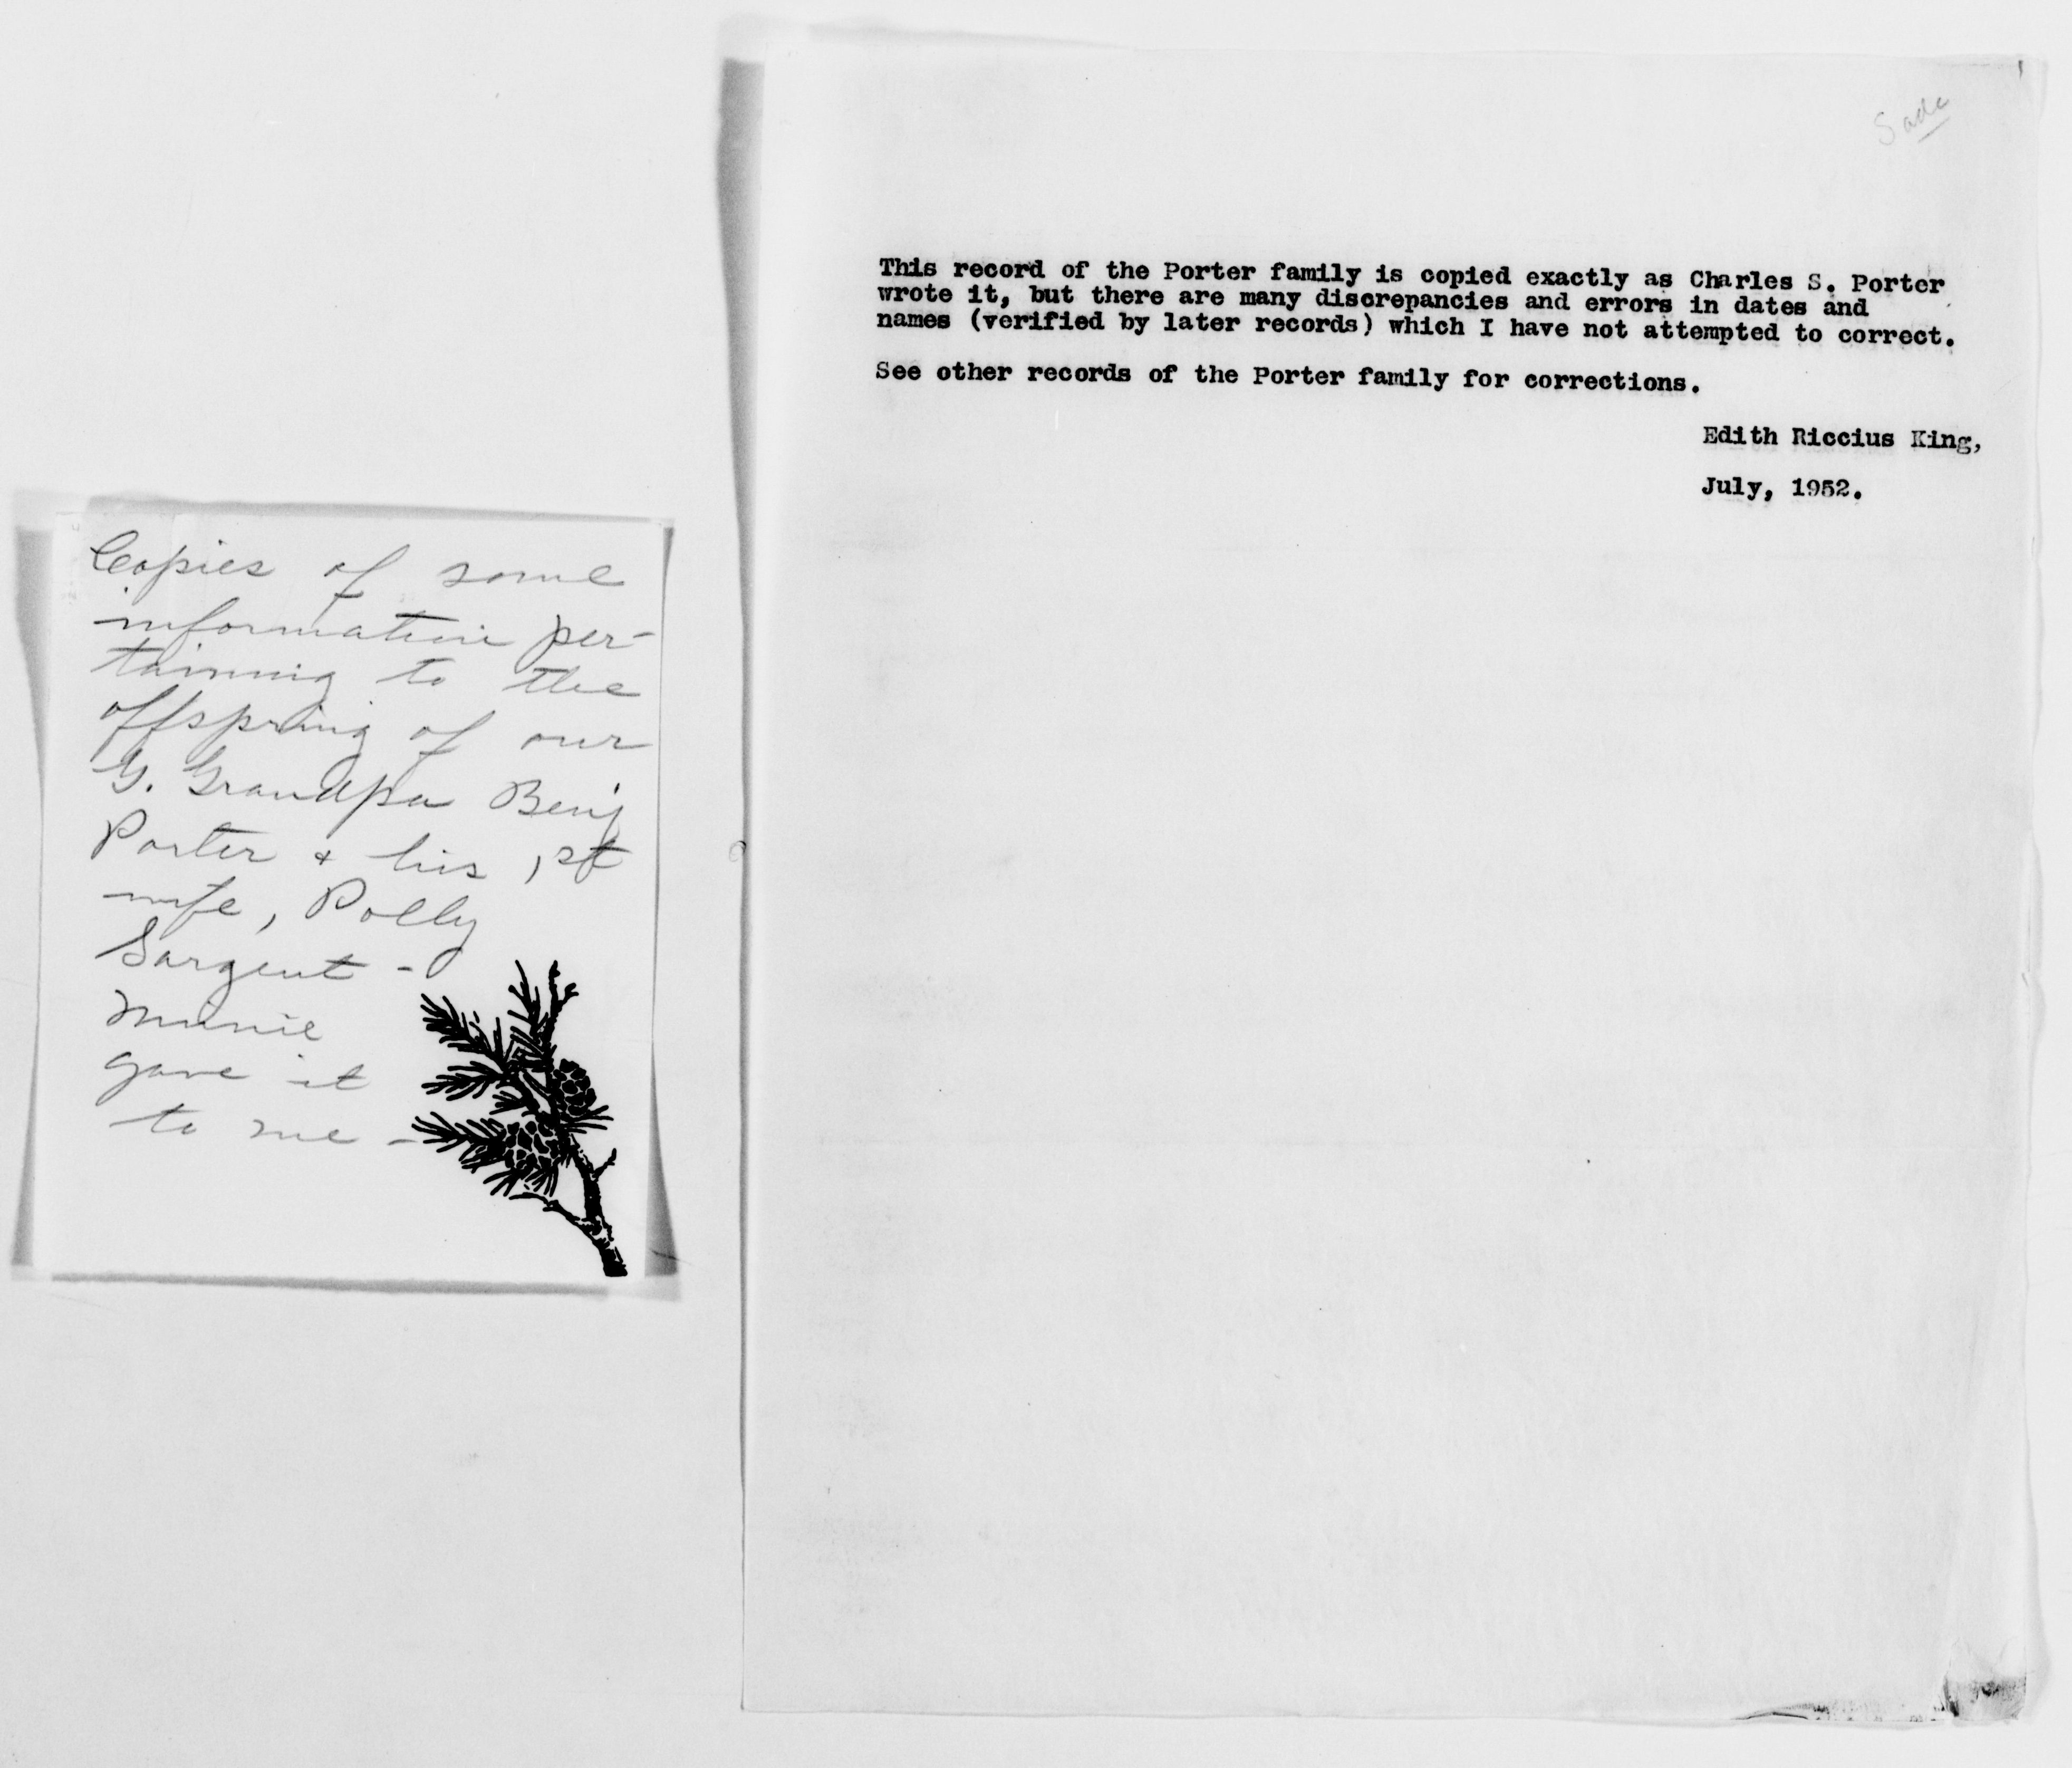 Copies of some
information per-
taining to the
offspring of our
G. Grandpa Benj
Porter & his 1st
wife, Polly
Sargent -
Minnie
gave it
to me -
Sade
This record of the Porter family is copied exactly as Charles S. Porter
wrote it, but there are many discrepancies and errors in dates and
names (verified by later records) which I have not attempted to correct.
See other records of the Porter family for corrections.
Edith Riccius King,
July, 1952.